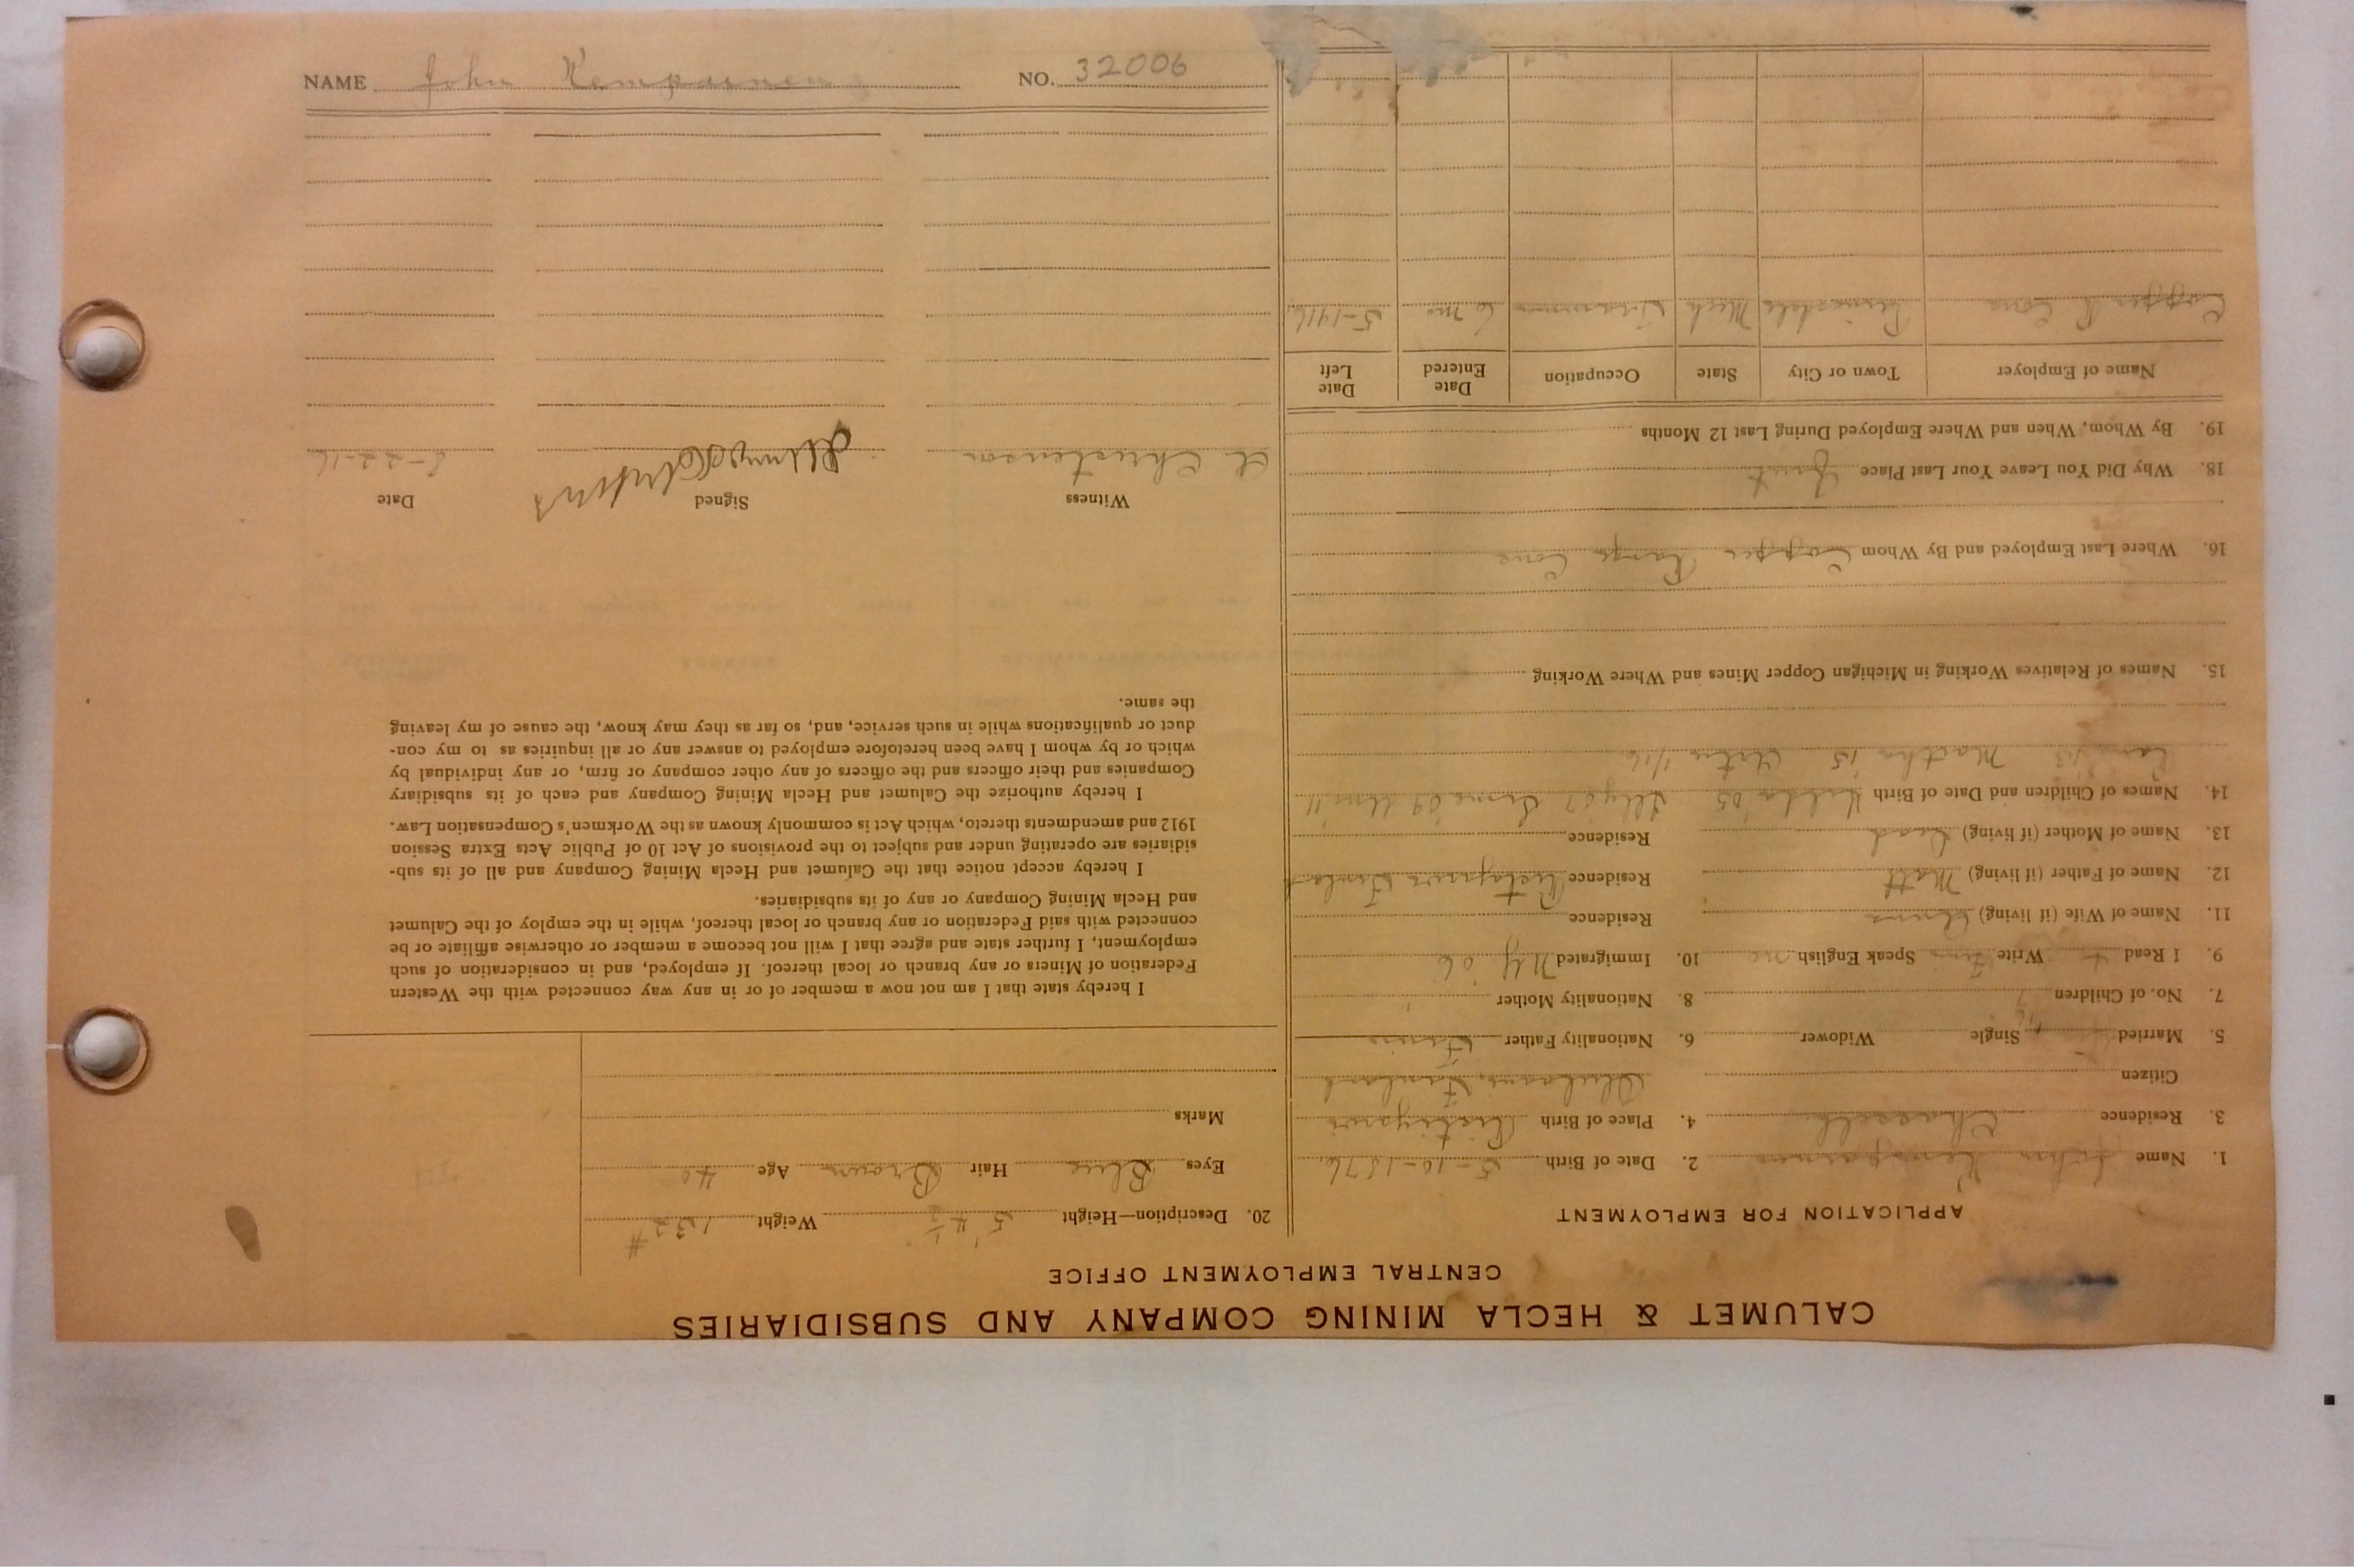 NAME John Kemppainen NO. 32006
CALUMET & HECLA MINING COMPANY AND SUBSIDIARIES
CENTRAL EMPLOYMENT OFFICE
APPLICATION FOR EMPLOYMENT
1. Name John Kemppainen 2. Date of Birth 5-10-1876
3. Residence Chassell 4. Place of Birth
Citizen Finland
5. Married Single Widower 6. Nationality Father
7. No. of Children 7 8. Nationality Mother "
9. I Read Write Speak English no 10. Immigrated NY 06
11. Name of Wife (if living) Anna Residence
12. Name of Father (if living) Matt Residence
13. Name of Mother (if living) Dead Residence
14. Names of Children and Date of Birth Hilda '05 '07 '09 '11
'13 Martha '15 1/16
15. Names of Relatives Working in Michigan Copper Mines and Where Working
16. Where Last Employed and By Whom Copper Range Cons
18. Why Did You Leave Your Last Place Quit
19. By Whom, When and Where Employed During Last 12 Months
Name of Employer Town or City State Occupation Date Entered Date Left
Copper R Cons Painesdale Mich Trammer 6 mo 5-1916
20. Description—Height 5' 4 1/2" Weight 132 #
Eyes Blue Hair Brown Age 40
Marks
I hereby state that I am not now a member of or in any way connected with the Western
Federation of Miners or any branch or local thereof. If employed, and in consideration of such
employment, I further state and agree that I will not become a member or otherwise affiliate or be
connected with said Federation or any branch or local thereof, while in the employ of the Calumet
and Hecla Mining Company or any of its subsidiaries.
I hereby accept notice that the Calumet and Hecla Mining Company and all of its sub-
sidiaries are operating under and subject to the provisions of Act 10 of Public Acts Extra Session
1912 and amendments thereto, which Act is commonly known as the Workmen's Compensation Law.
I hereby authorize the Calumet and Hecla Mining Company and each of its subsidiary
Companies and their officers and the officers of any other company or firm, or any individual by
which or by whom I have been heretofore employed to answer any or all inquiries as to my con-
duct or qualifications while in such service, and, so far as they may know, the cause of my leaving
the same.
Witness Signed Date
A Christenson 8-22-16